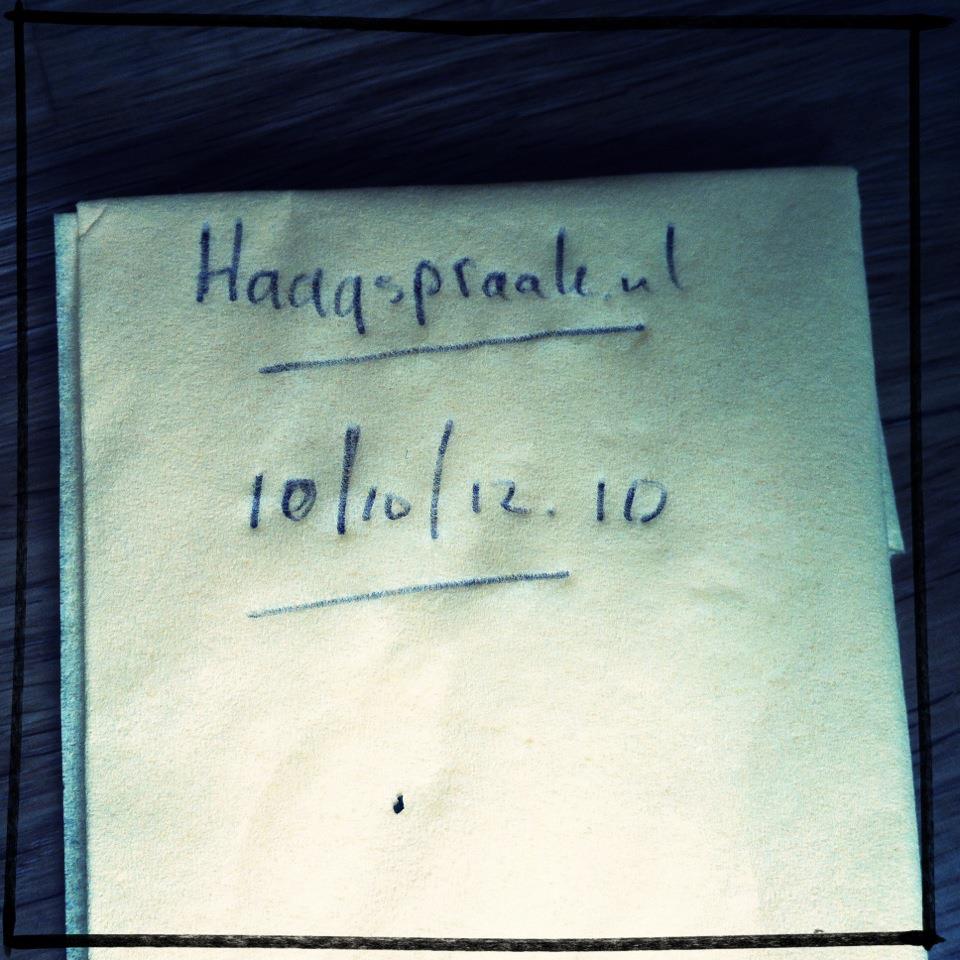 Haagspraak.nl
10/10/12. 10